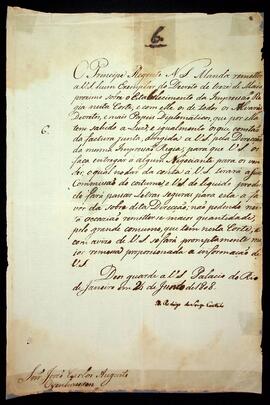 6.
O Principe Regente N. S. Manda remetter
a V. S. hum Exemplar do Decreto de treze de Maio
proximo sobre o Estabelecimento da Impressão Re
gia nesta Corte, e com elle o de todos os Alvarás
Decretos, e mais Papeis Diplomaticos, que por ella
tem sahido a Luz: e igualmente o que consta
da factura junta, dirigida a V. S. pela Direcção
da mesma Impressão Regia; para que V. S. os
6.
faça entregar a algum Negociante para os ven
der, o qual nodar da conta a V. S. tirará a sua
Commissão do costume, e V. S. do liquido produc
to fará passar Letras seguras para esta a fa
vor da sobre dita Direcção, não podendo nes
ta occasião remetter-se maior quantidade
pelo grande consumo, que tem nesta Corte, e
com aviso de V. S. se fará promptamente ma
ior remessa proporcionada a informação de
V. S.
Deos guarde a V. S. Palacio do Rio
de Janeiro em 24 de Junho de 1808.
D. Rodrigo de Souza Coutinho
Snr. João Carlos Augusto
Oyenhausen